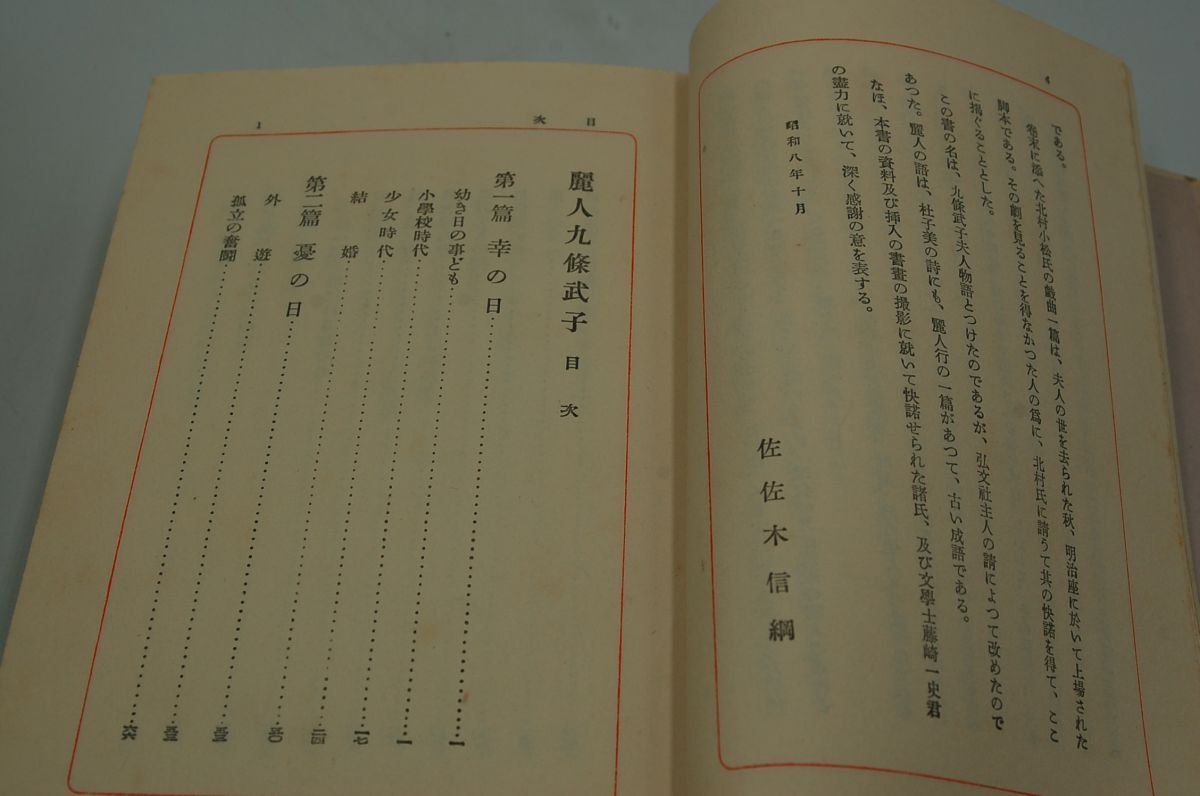 4
である。
卷末に添へた北村小松氏の戲曲一篇は、夫人の世を去られた秋、明治座に於いて上場された
脚本である。その劇を見ることを得なかつた人の爲に、北村氏に請うて其の快諾を得て、ここ
に揭ぐることとした。
この書の名は、九條武子夫人物語とつけたのであるが、弘文社主人の請によつて改めたので
あつた。麗人の語は、杜子美の詩にも、麗人行の一篇があつて、古い成語である。
なほ、本書の資料及び挿入の書畫の撮影に就いて快諾せられた諸氏、及び文學士藤崎一史君
の盡力に就いて、深く感謝の意を表する。
昭和八年十月
佐佐木信綱
目次
1
麗人九條武子 目次
第一篇 幸の日 一
幼き日の事ども 一
小學校時代 一七
少女時代
結婚 五〇
第二篇 憂の日 五三
外遊 五三
孤立の奮鬪 六六